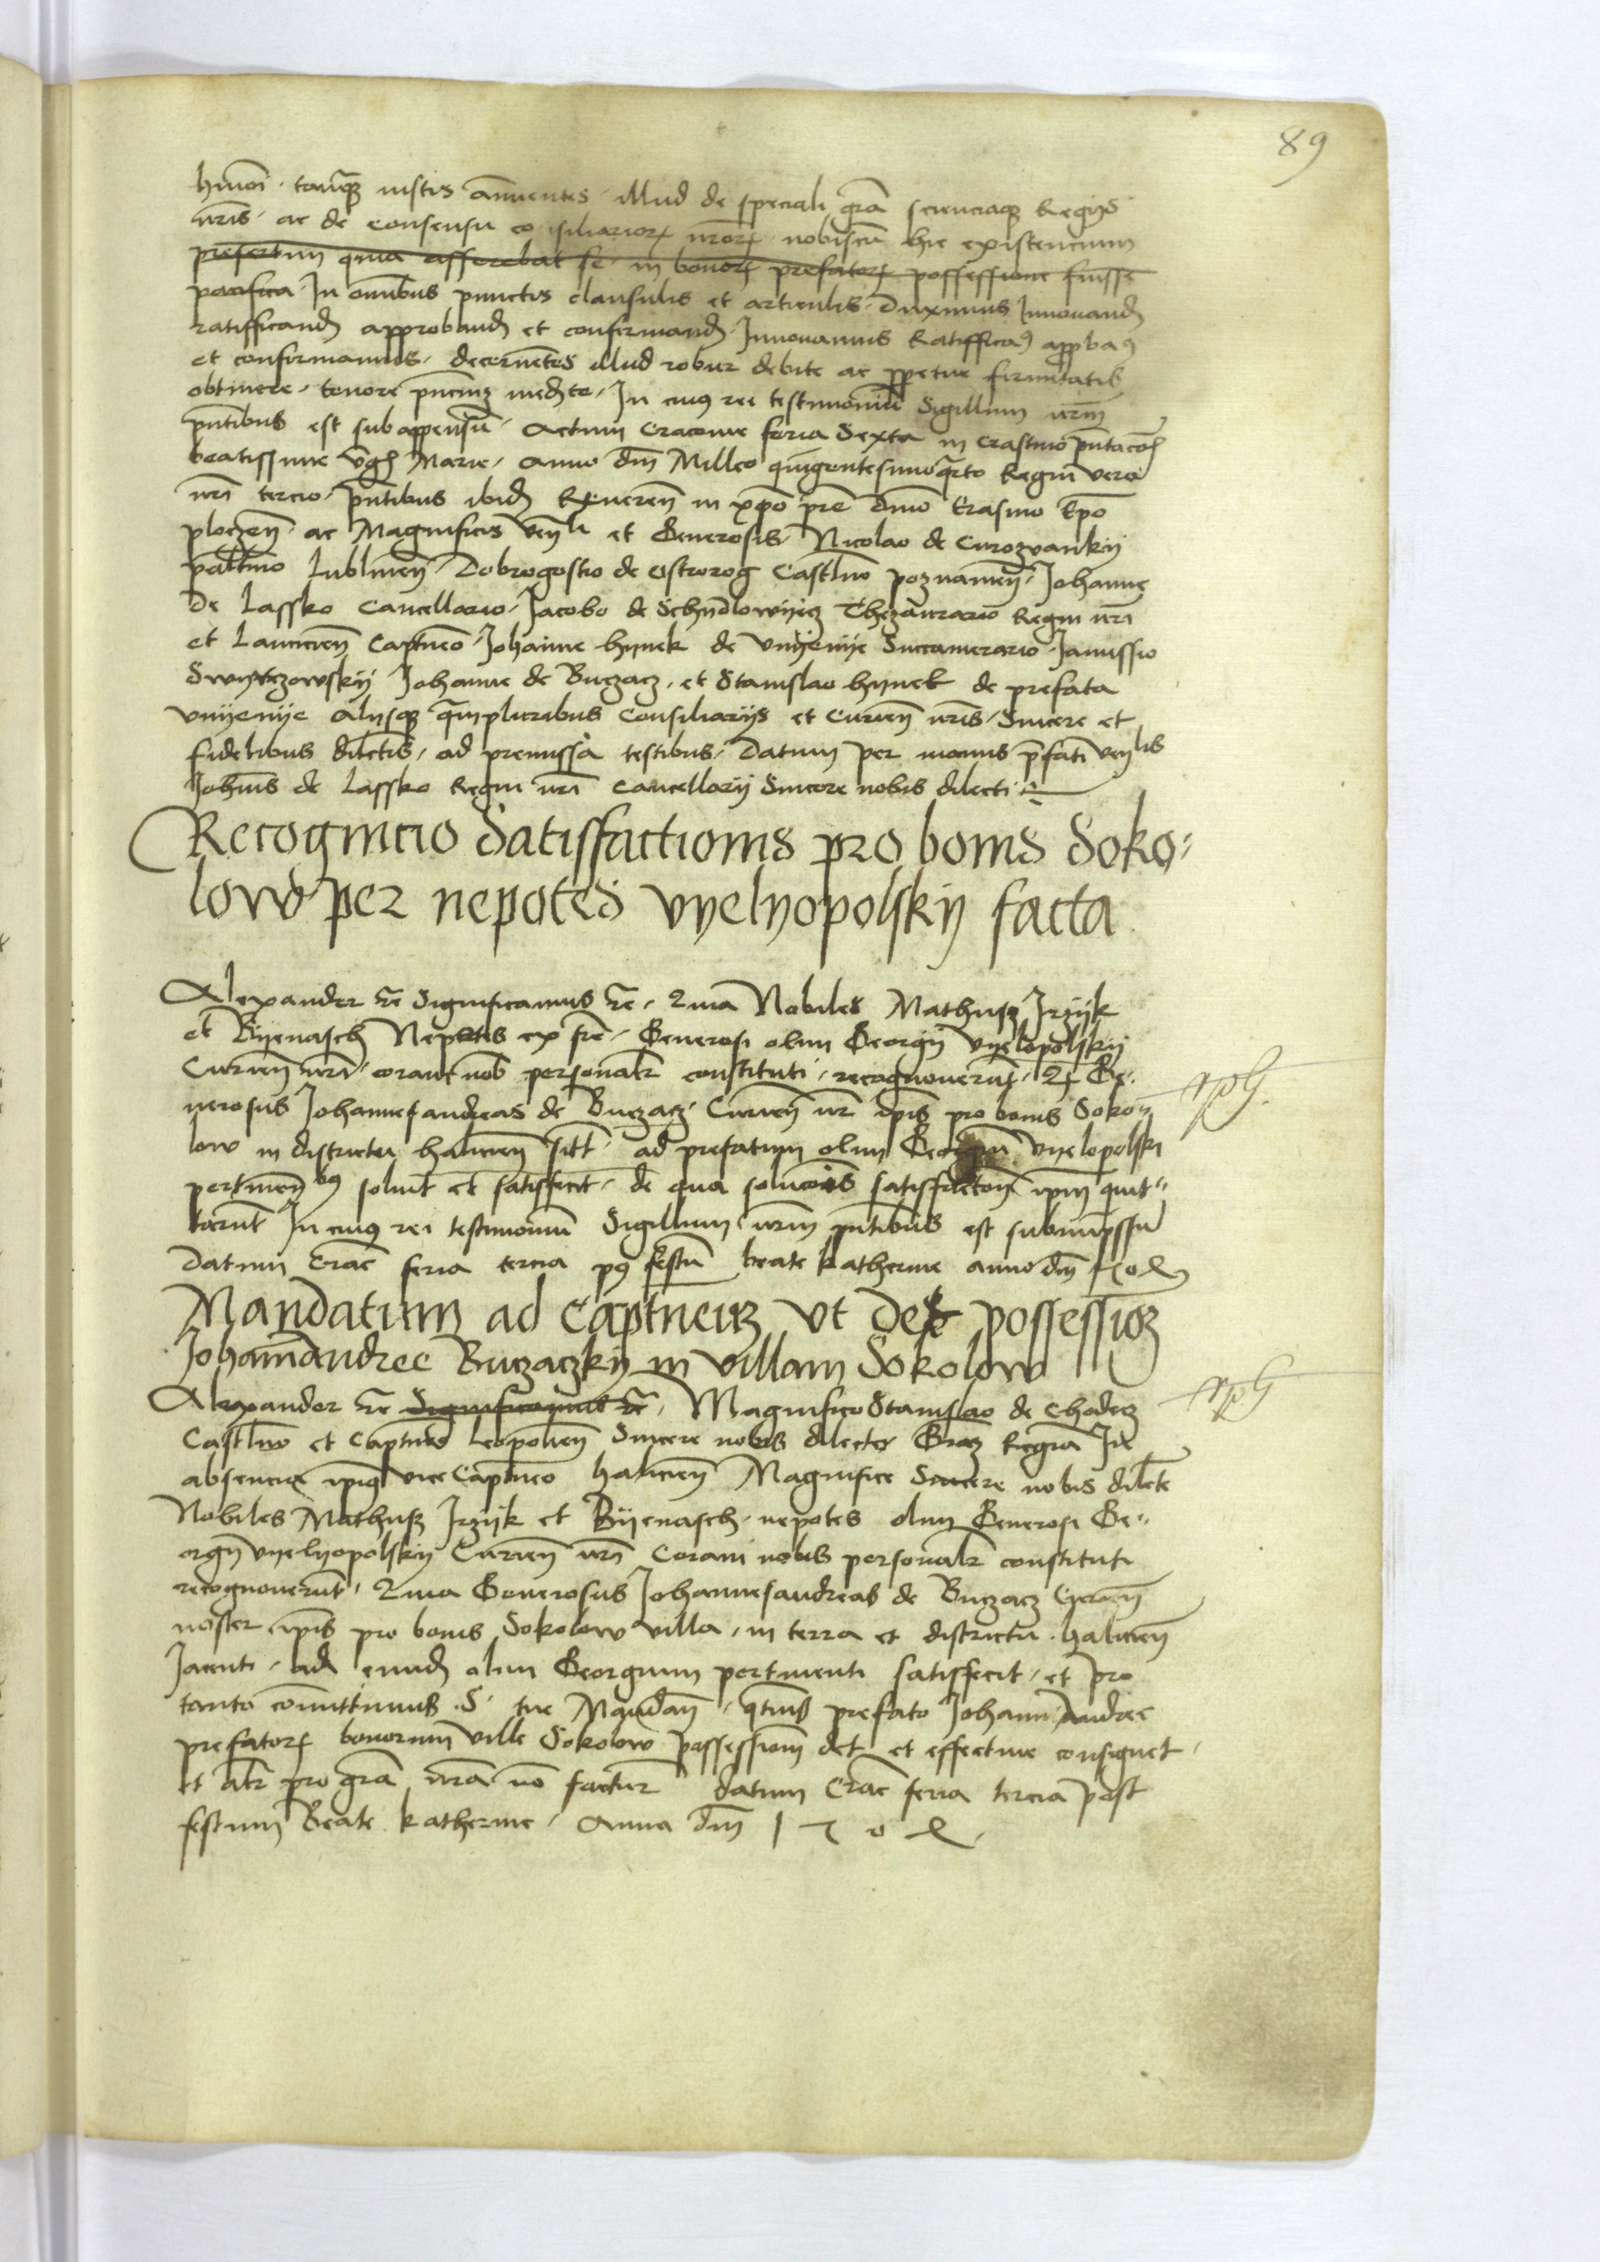 89
hmoi. tanq iustis annuentes. illud de speciali gra scienciaq Regijs
nris. ac de consensu co isiliarior nror nobiscu hic existencium
presertim quia asserebat se in bonor prefator possessione fuisse
pacifica. In omnibus punctis clausulis et articulis. Duximus Innouand
ratifficand approband et confirmand. Innouamus Ratiffica9 appba9
et confirmamus. decernetes illud robur debite ac ppetue firmitatis
obtinere. tenore pncium medte. In cui9 rei testimoniu Sigillum nrm
pntibus est subappensu. Actum Cracouie feria Sexta in Crastino pntacois
beatissime vgis Marie. Anno dni Millo quigentesimoqrto Regni vero
nri tercio. pntibus ibid Reueren in xpo pre dno Erasmo Epo
plocen. ac Magnificis venli et Generosis. Nicolao de Curozwankij
paltino Lublinen. Dobrogostio de Ostrorog Castlno poznanien. Johanne
de Lassko Cancellario. Jacobo de Schydlowijecz Thezaurario Regni nri
et Lancicien Captneo. Johanne hynek de Vnyenije Succamerario. Janussio
Swyrczowskij Johanne de Buczacz. et Stanislao hynek de prefata
vnijenije Alijsq qmpluribus Consiliarijs et Curien nris. Sincere et
fidelibus diletis. ad premissa testibus. Datum per manus pfati venlis
Johnis de Lassko Regni nri Cancellarij Sincere nobis dilecti
Recognicio Satisffactionis pro bonis Soko:
low per nepotes vyelyopolskij facta
Alexander etc Significamus etc. Quia Nobiles Mathusz Irzijk
et Byenasch Nepotes ex fre. Generosi olim Georgij vyelopolskij
Curien nri. coram nob personalr constituti. recognouerut. Qz Ge.
nerosus Johannesandreas de Buczacz. Curien nr ipis pro bonis Soko
low in districtu halicien sitt. ad prefatum olim Georgiu vyelopolski
pertinen b9 soluit et satisfecit. de qua solucois satisfactione ipm quit"
tarunt In cui9 rei testimoniu Sigillum nrm pntibus est subimpssu
Datum Crac feria tercia p9 festu beate katherine anno dni 1504
Mandatum ad Captneum vt det possessionem
Johaniandree Buczaczkij in villam Sokolow
Alexander etc Significamus etc. Magnifico Stanislao de Chodecz
Castlno et Captneo Leopolien Sincere nobis dilecto Graz Regia In
absencia ipi9 vice Captneo halicien Magnifice Sincere nobis dilete
Nobiles Mathusz Irzijk et Byenasch. nepotes olim Generosi Ge"
orgij vyelyopolskij Curien nri Coram nobis personalr constituti
recognouerut. Quia Generosus Johannesandreas de Buczacz Curien
noster ipis pro bonis Sokolow villa. in terra et districtu. halicien
Jacenti. ad eund olim Georgium pertinenti satisfecit. et pro
tanto comittimus. S. tue Mandan. qtnus prefato Johanni Andree
prefator bonorum ville Sokolow possessionem det et effectiue consignet.
et alr pro gra nra no factur datum Crac feria tercia post
festum Beate katherine. Anno dni 1504